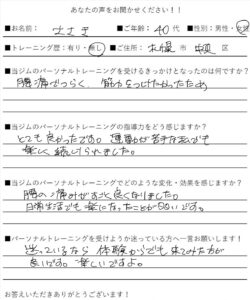 あなたの声をお聞かせください！！
■お名前： ささき ■ご年齢：40代 ■性別：男性・女性
■トレーニング歴：有り・無し ■ご住所：大阪市 区
■当ジムのパーソナルトレーニングを受けるきっかけとなったのは何ですか？
腰痛がつらく、筋力をつけたかったため
■当ジムのパーソナルトレーニングの指導力をどう感じますか？
とても良かったです。運動が苦手な私でも
楽しく続けられました。
■当ジムのパーソナルトレーニングでどのような変化・効果を感じますか？
腰の痛みがすごく良くなりました。
日常生活でも楽になったことが多いです。
■パーソナルトレーニングを受けようか迷っている方へ一言お願いします！
迷っているなら体験からでも来てみた方が
良いです。楽しいですよ。
お答えいただきありがとうございます！